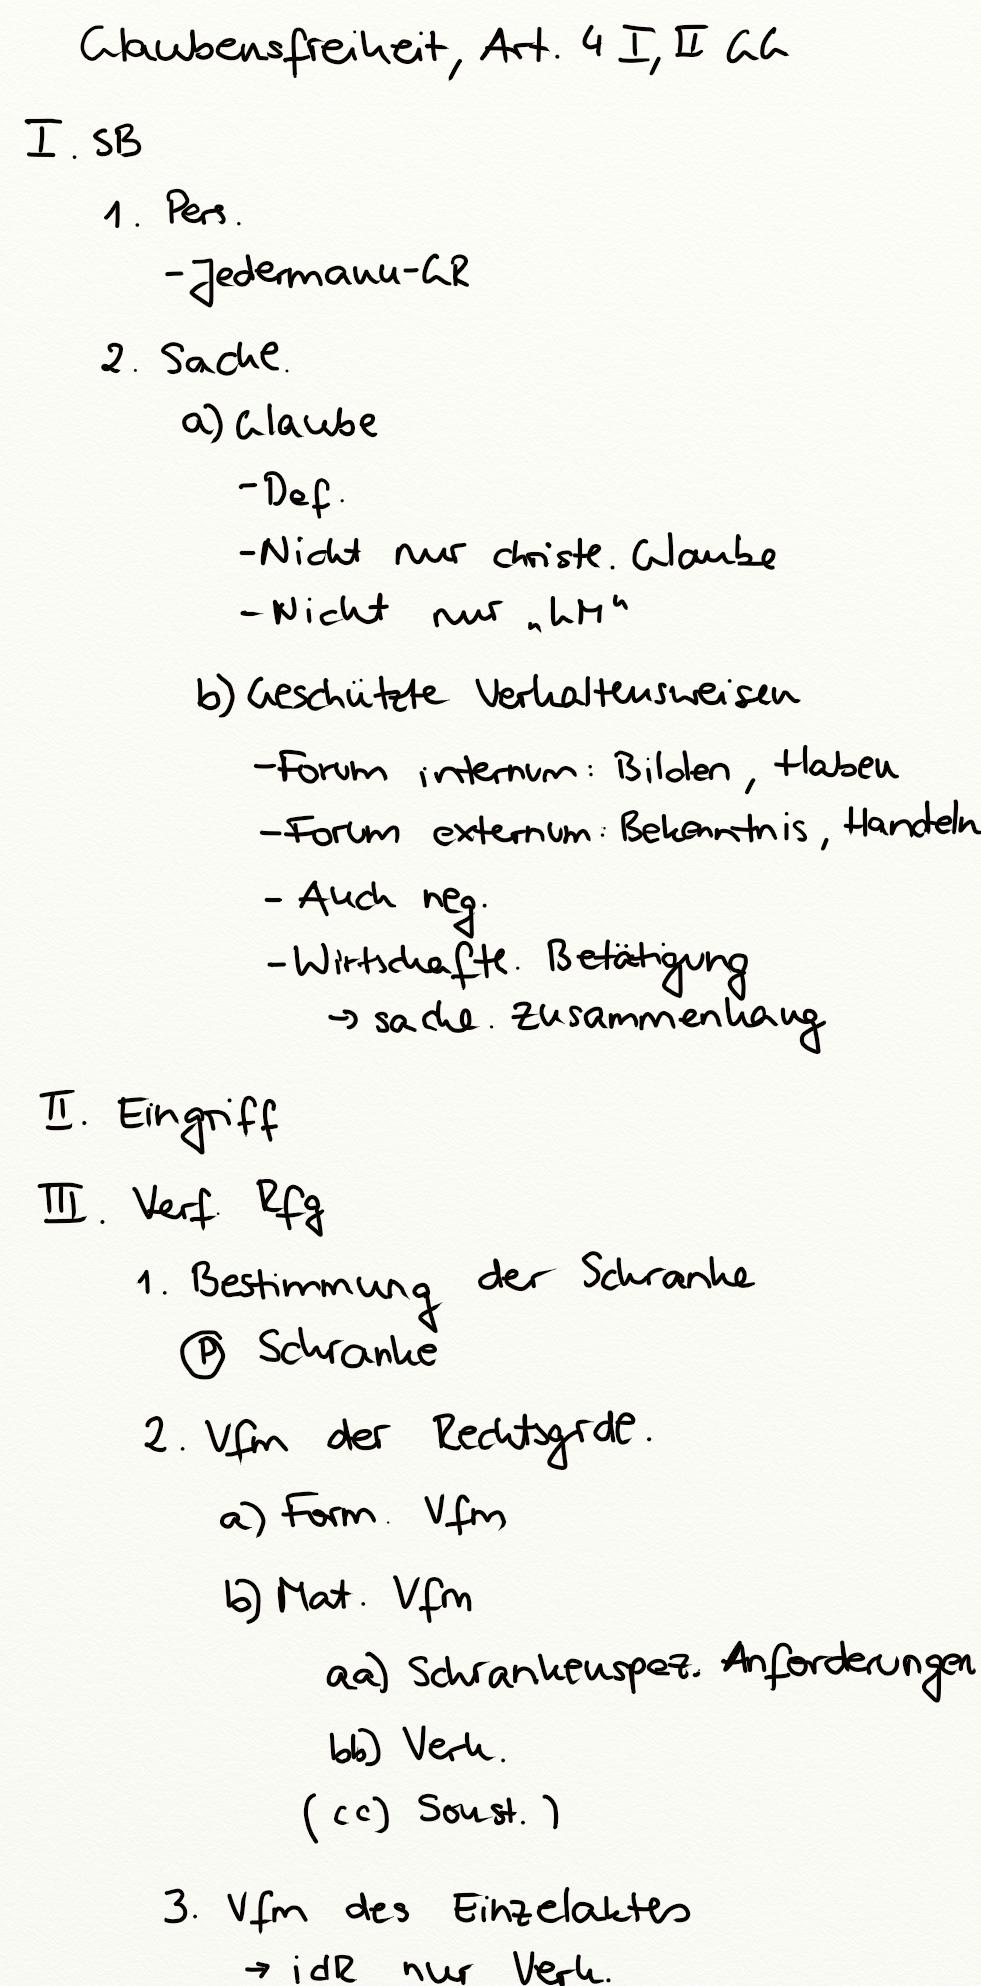 Glaubensfreiheit, Art. 4 I, II GG
I. SB
1. Pers.
- Jedermann-GR
2. Sachl.
a) Glaube
- Def.
- Nicht nur christl. Glaube
- Nicht nur „hM“
b) Geschützte Verhaltensweisen
- Forum internum: Bilden, Haben
- Forum externum: Bekenntnis, Handeln
- Auch neg.
- Wirtschaftl. Betätigung
→ sachl. Zusammenhang
II. Eingriff
III. Verf. Rfg
1. Bestimmung der Schranke
Ⓟ Schranke
2. Vfm der Rechtsgrdl.
a) Form. Vfm
b) Mat. Vfm
aa) Schrankenspez. Anforderungen
bb) Verh.
(cc) Sonst.)
3. Vfm des Einzelaktes
→ idR nur Verh.